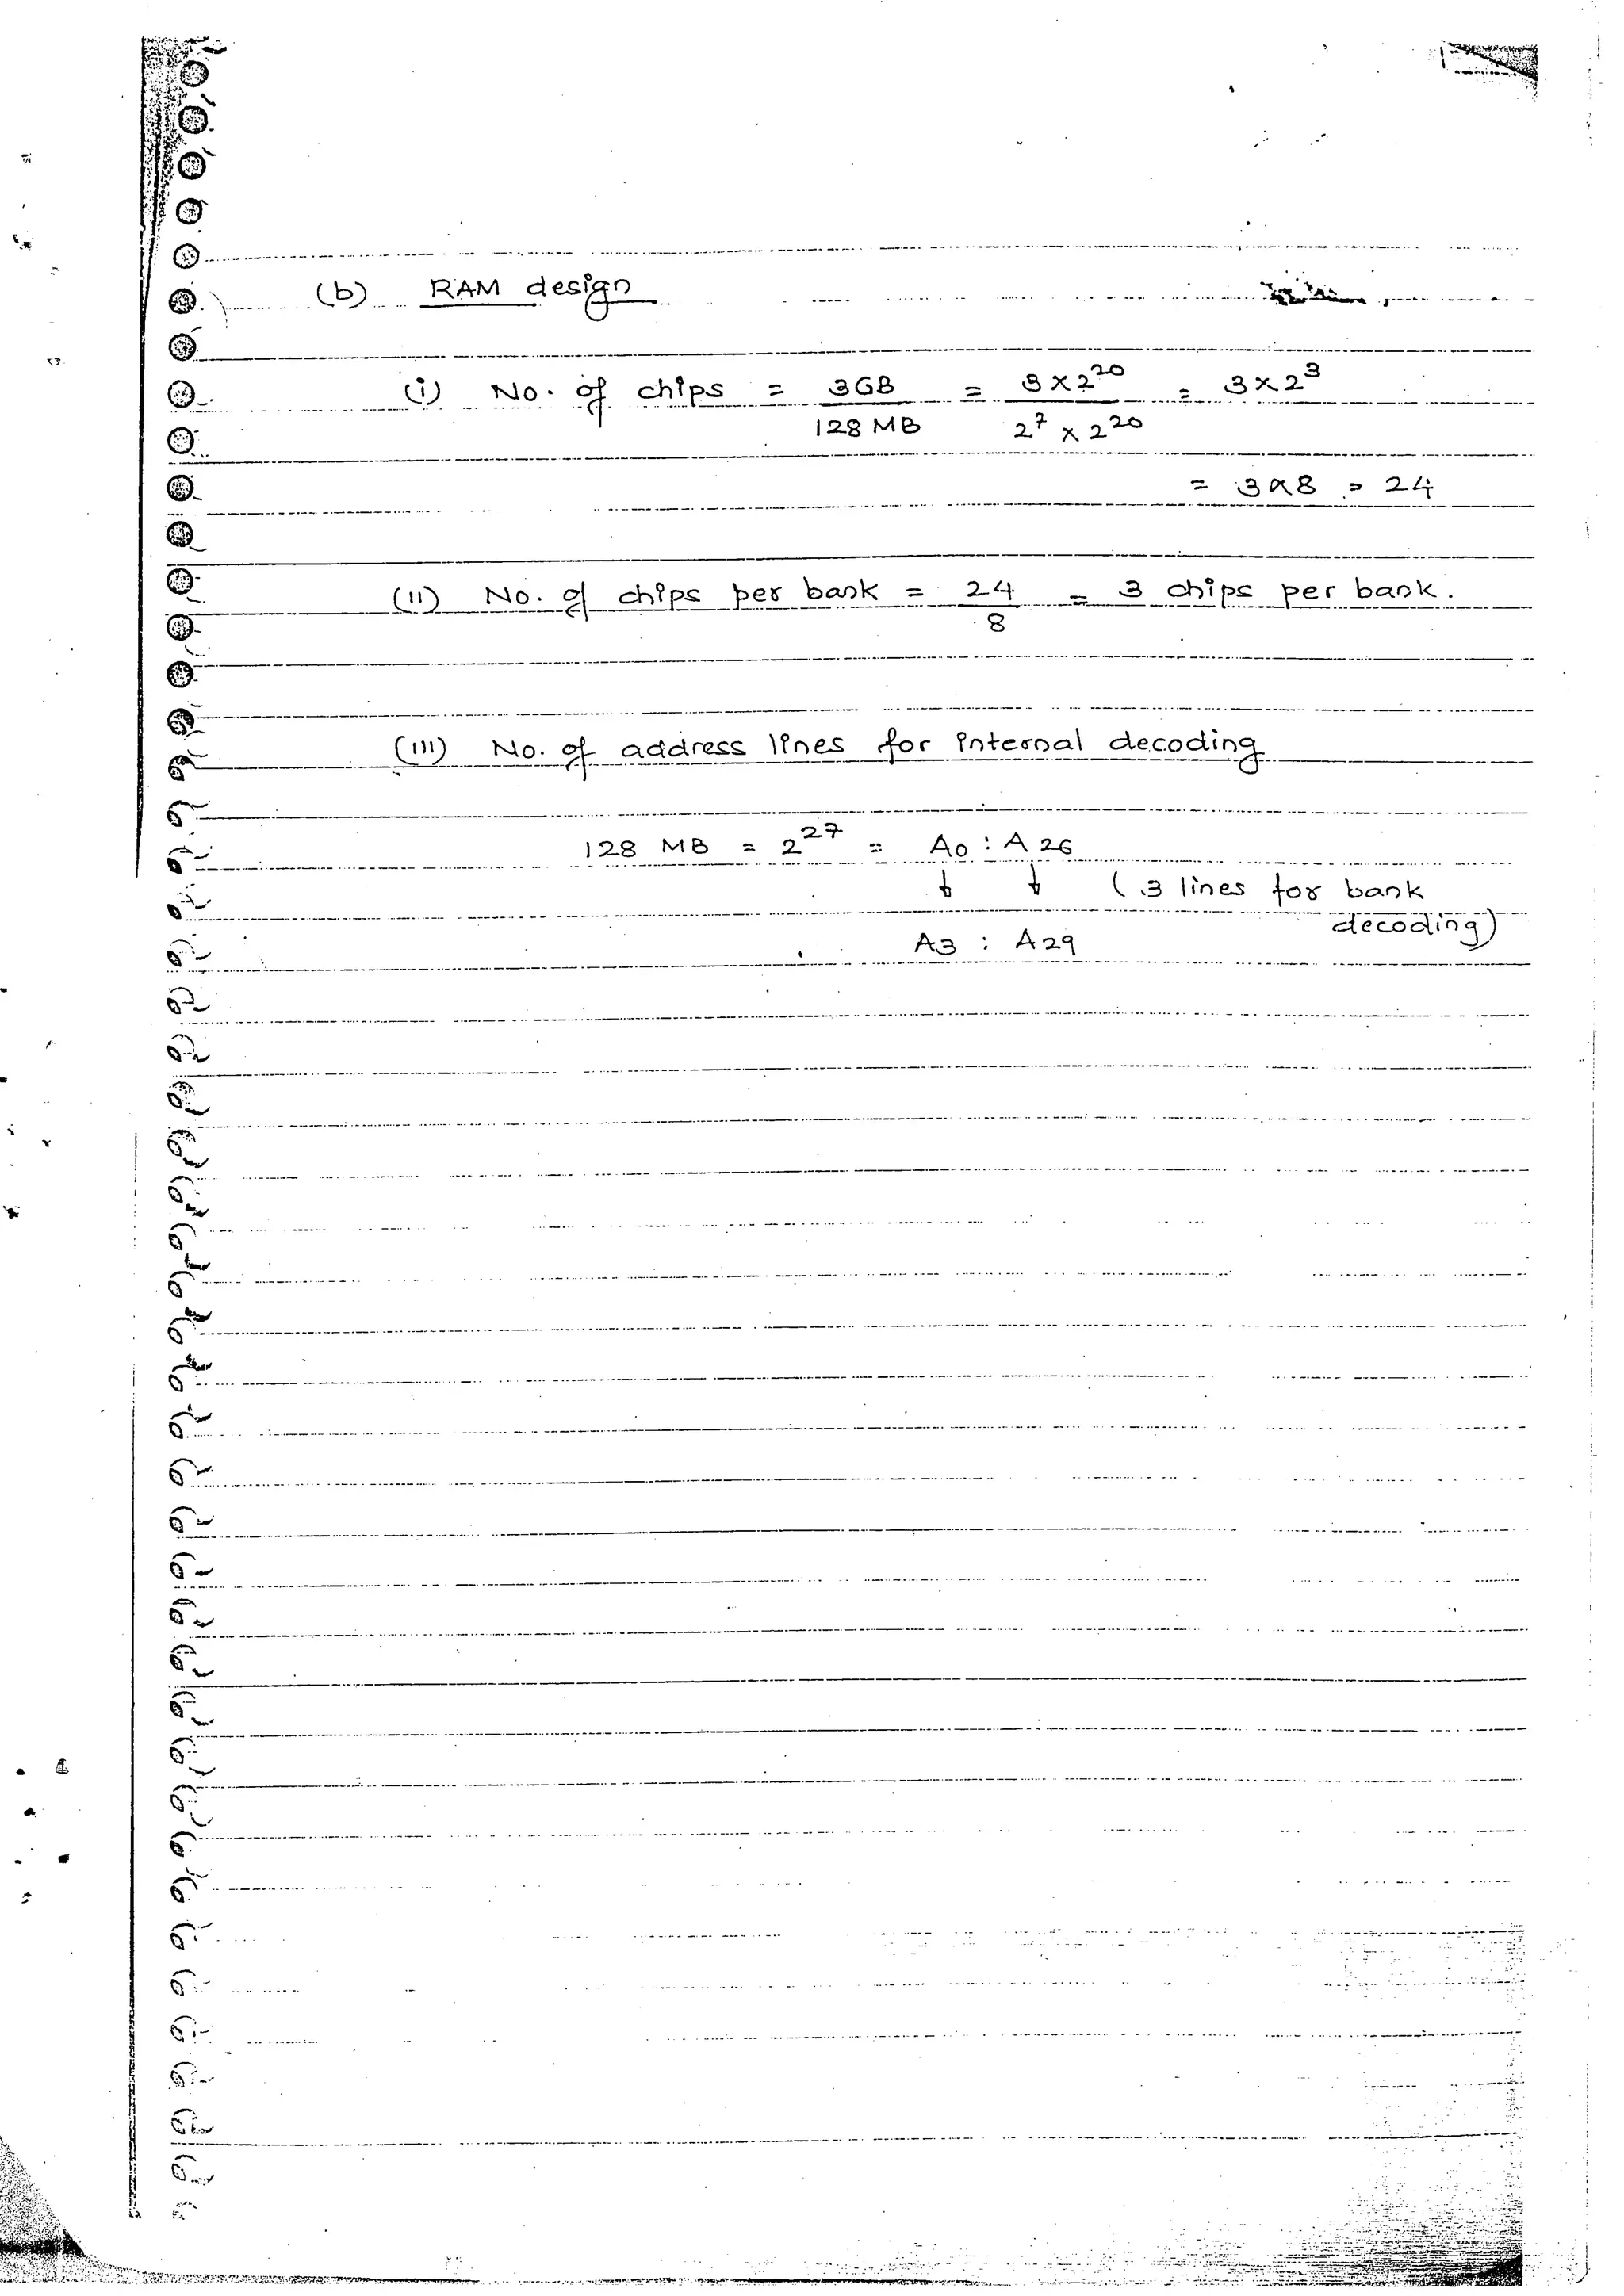 (b) RAM design
(i) No. of chips = 3GB / 128 MB = 3 X 2^20 / 2^7 x 2^20 = 3 x 2^3
= 3 x 8 = 24
(ii) No. of chips per bank = 24 / 8 = 3 chips per bank.
(iii) No. of address lines for internal decoding
128 MB = 2^27 = A0 : A26
↓ ↓ (3 lines for bank
decoding)
A3 : A29